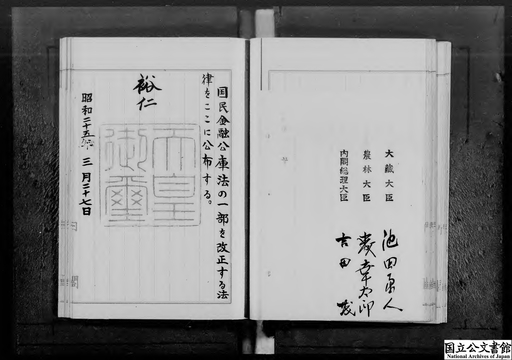 大藏大臣 池田勇人
農林大臣 森幸太郎
内閣総理大臣 吉田茂
国民金融公庫法の一部を改正する法
律をここに公布する。
裕仁
天皇
御璽
昭和二十五年三月二十七日
国立公文書館
National Archives of Japan